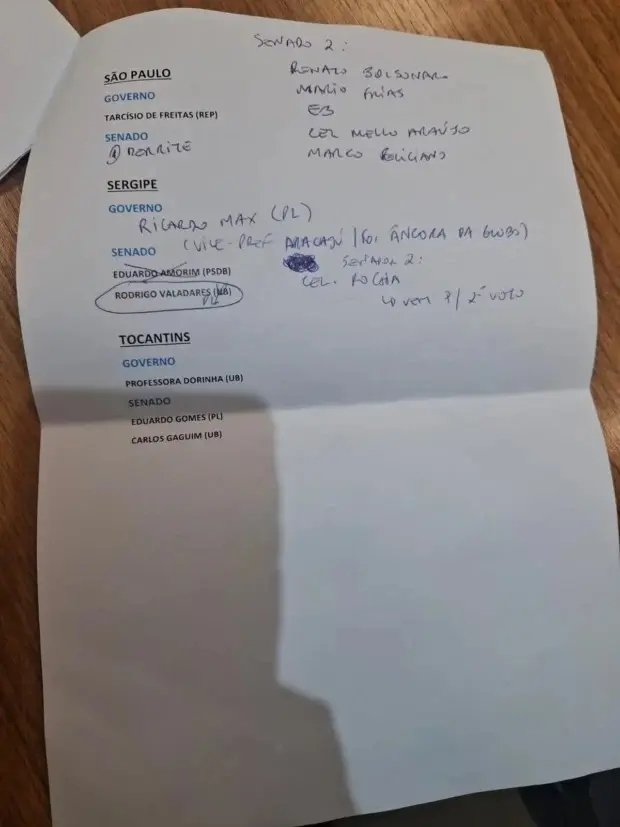 SENADO 2:
SÃO PAULO
RENATO BOLSONARO
GOVERNO
MARIO FRIAS
TARCÍSIO DE FREITAS (REP)
EB
SENADO
CEL MELLO ARAÚJO
① DERRITE
MARCO FELICIANO
SERGIPE
GOVERNO
RICARDO MAX (PL)
(VICE-PREF ARACAJÚ / FOI ÂNCORA DA GLOBO)
SENADO
EDUARDO AMORIM (PSDB)
SENADOR 2:
RODRIGO VALADARES
CEL. ROCHA
↳ VEM P/ 2º VOTO
TOCANTINS
GOVERNO
PROFESSORA DORINHA (UB)
SENADO
EDUARDO GOMES (PL)
CARLOS GAGUIM (UB)